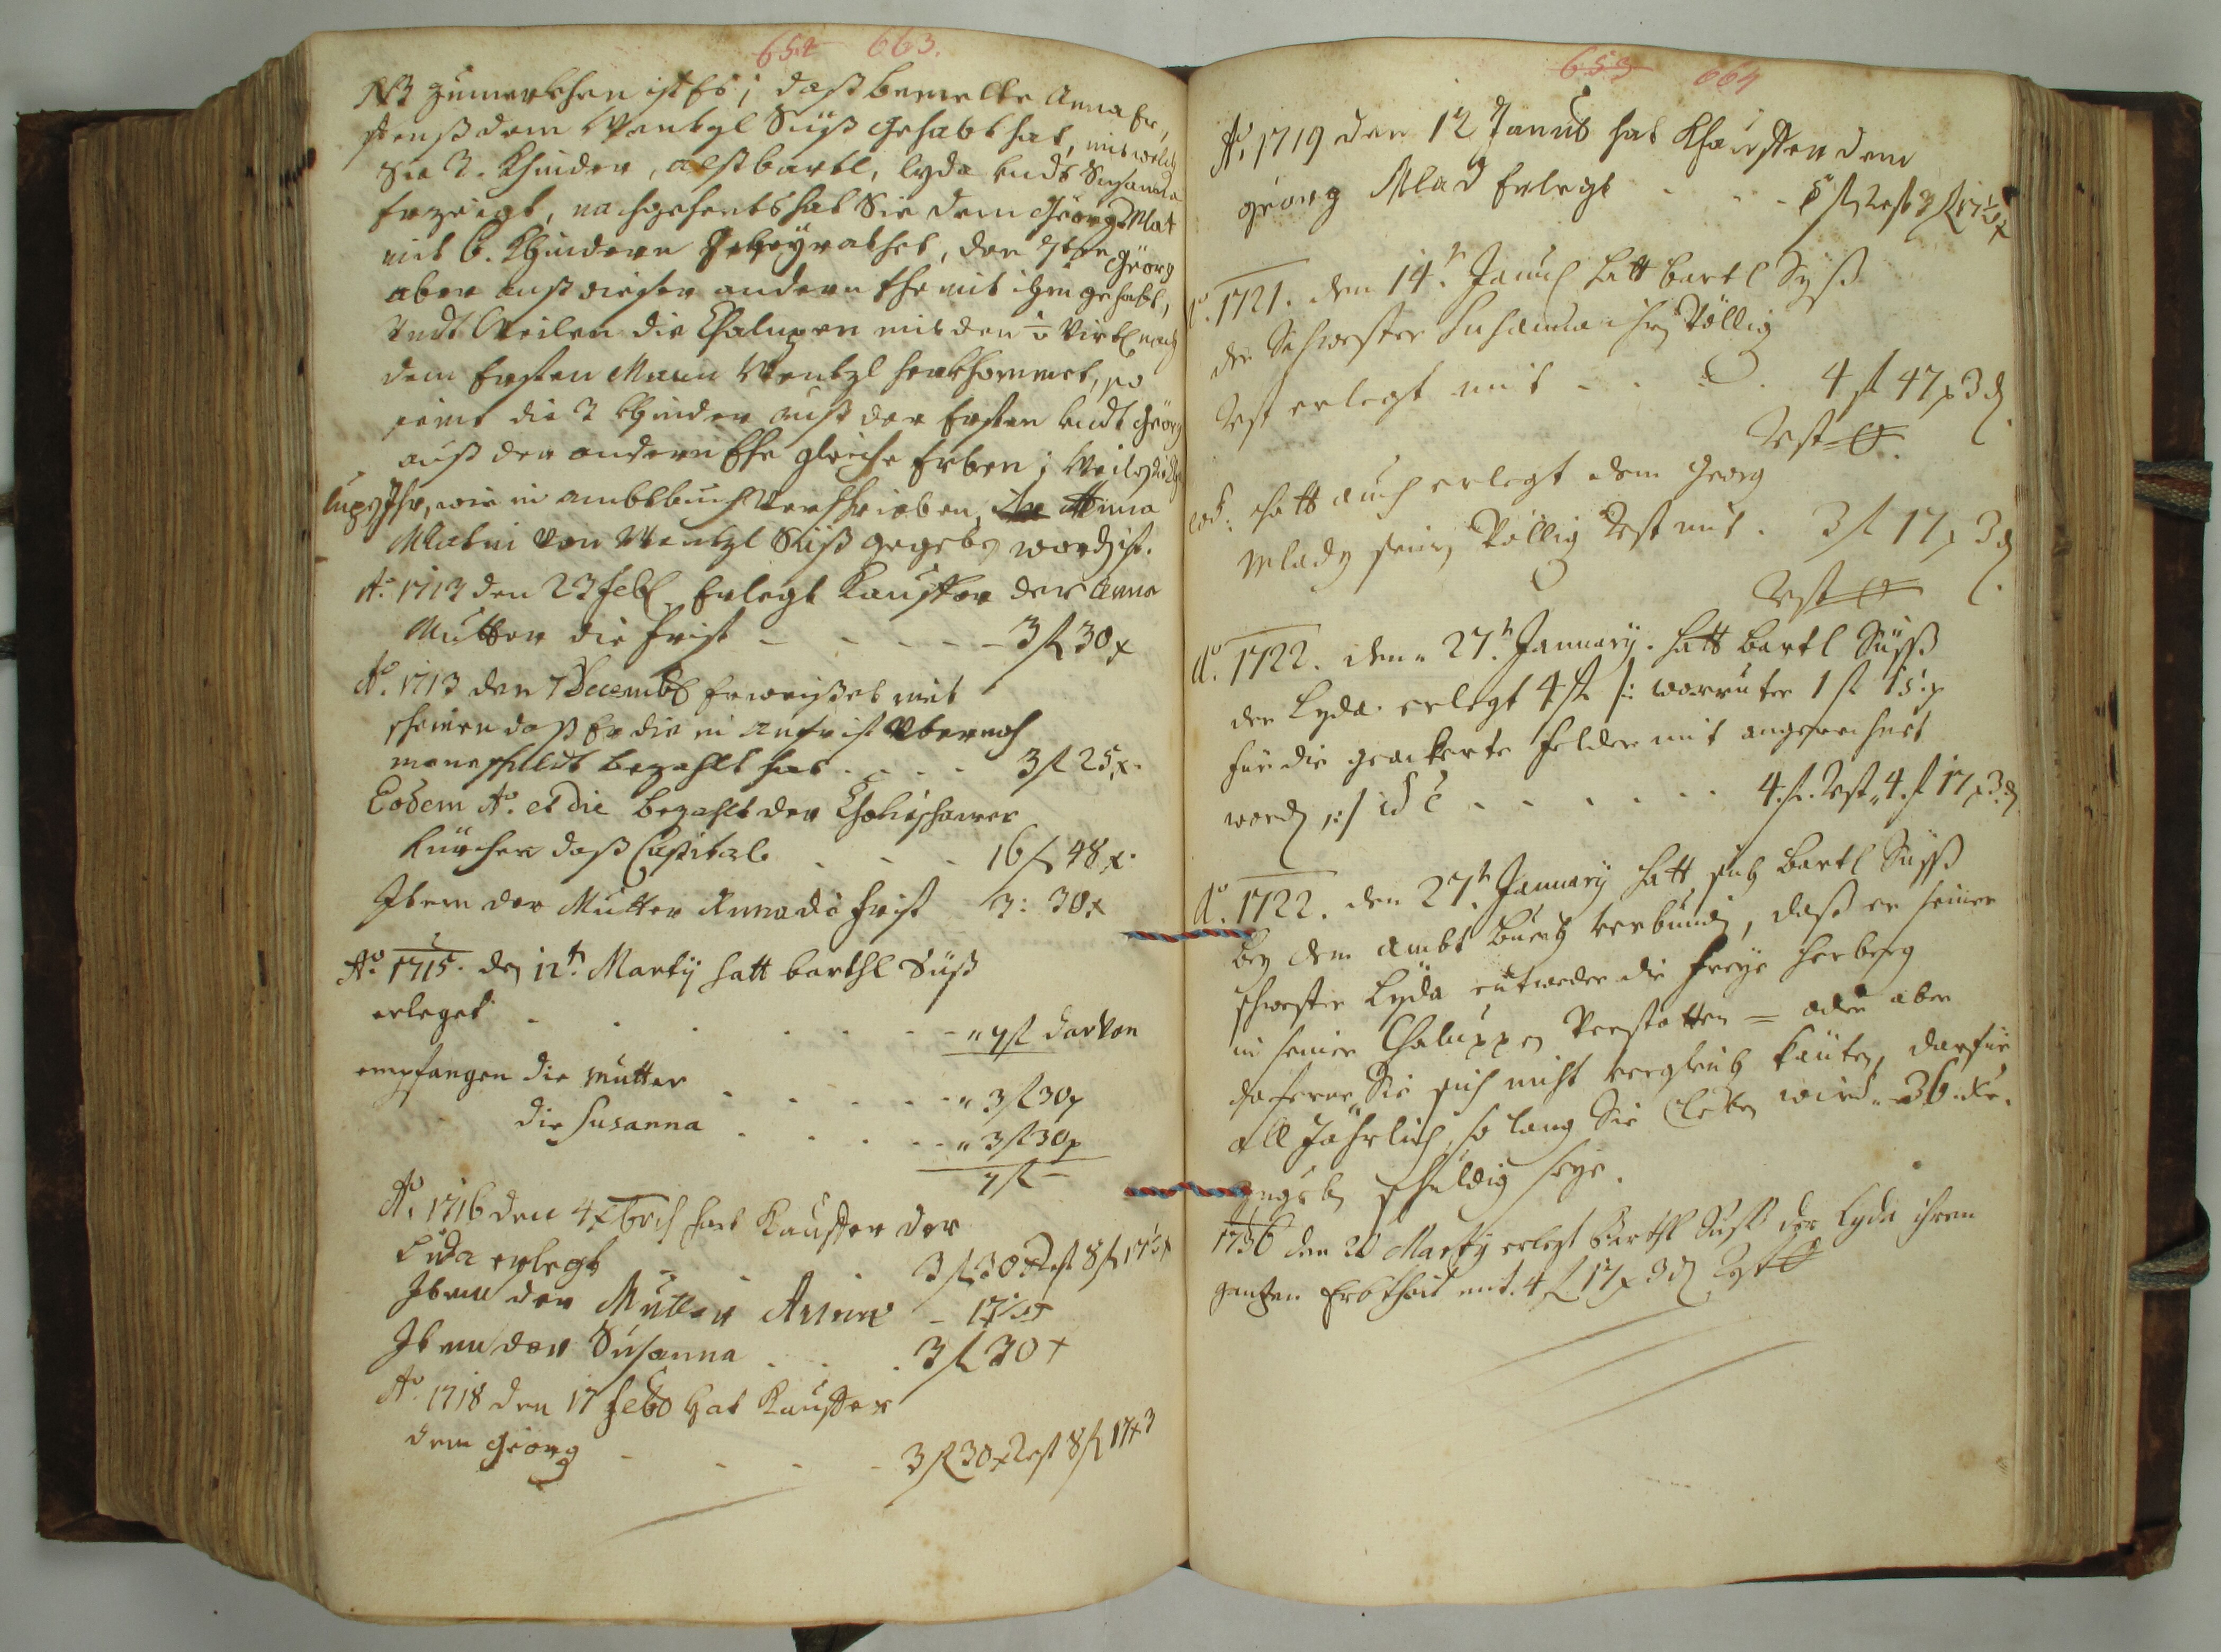 652 663.
NB zumerkhen ist Es, daß bemelte Anna Er,
stenß dem Wentzl Süß gehabt hat, mit welch
Sie 3. Khinder, alß bartl, lyda undt Susanna
Erzeigt, nachgehents hat Sie dem Georg Mlat
mit Khindern geheyrathet, den Georg
aber auß dieser andern Ehe mit ihm gehabt,
undt Weilen die Chaluppen mit den Virtl nach
dem Ersten Mann Wentzl herkhommet, so
seint die 3 Khinder auß der Ersten undt Georg
auß der andern Ehe gleiche Erben; Weilen die Cha
lupen Ihr, wie in ambtbuch Verschrieben, Anna
Mlatin Von Wentzl Süß gegeben worden ist.
Ao. 1713 den 23 feb Erlegt Kauffer der Anna
Mutter die frist - - - - - 3 fl 30 x
Ao. 1713 den 7 Decemb Erweißet mit
schein daß Er die in anfrist Übernoh
mene schuldt bezahlt hat . . . . 3 fl 25 x.
Eodem Ao. et die bezahlt der
Kürchen daß Capital . . . 16 fl 48 x.
Item der Mutter Anna die frist 3: 30 x
Ao. 1715. den 12ten Marty hatt barthl Süß
erleget - - - - - - - „ 7 fl darvon
empfangen die mutter - - - - - - „ 3 fl 30 x
die Susanna . . . . - - „ 3 fl 30 x
7 fl -
Ao. 1716 den 4 xbris hat Kauffer der
Lida erlegt . . . 3 fl 30 x Rest 8 fl 17 x
Item der Mutter Anna - 17 x
Item der Susanna . . . 3 fl 30 x
Ao. 1718 den 17 Febo hat Kauffer
dem georg - - - - 3 fl 30 x Rest 8 fl 17 x 3
653 664
Ao. 1719 den 12 Janus hat Khauffer dem
georg Mlad Erlegt - - - 5 fl Rest 3 fl 17 x
Ao. 1721. den 14n. Janu hatt bartl Syß
der Schwester Susanna ihr Völlig
Rest erlegt mit - . . . 4 fl 47 x 3 d.
Rest 0.
eod: hatt auch erlegt dem Georg
Mlady sein Völlig Rest mit . 3 fl 17 x 3 d
Rest 0.
Ao. 1722. den 27n. January. hatt bartl Süß
der Lyda. erlegt 4 fl /: worunter 1 fl 15. x
für die geackerte felder mit angerechnet
worden :/ id e - - - - - - 4. fl. Rest „ 4. fl 17 x 3. d
Ao. 1722. den 27n. January hatt sich bartl Süß
bey dem Ambt Buch verbunden, daß er seiner
schwester Lyda entweder die freye herberg
in seiner Chaluppen Verstatten = oder aber
daferne Sie sich nicht vergleichen känten, darfür
all Jährlich, so lang Sie leben wird „ 36. xr.
zugeben schuldig seye.
1736 den 20 Marty erlegt barthl Süß der Lyda ihren
gantzen Erbtheil mit. 4 fl 17 x 3 d Rest 0